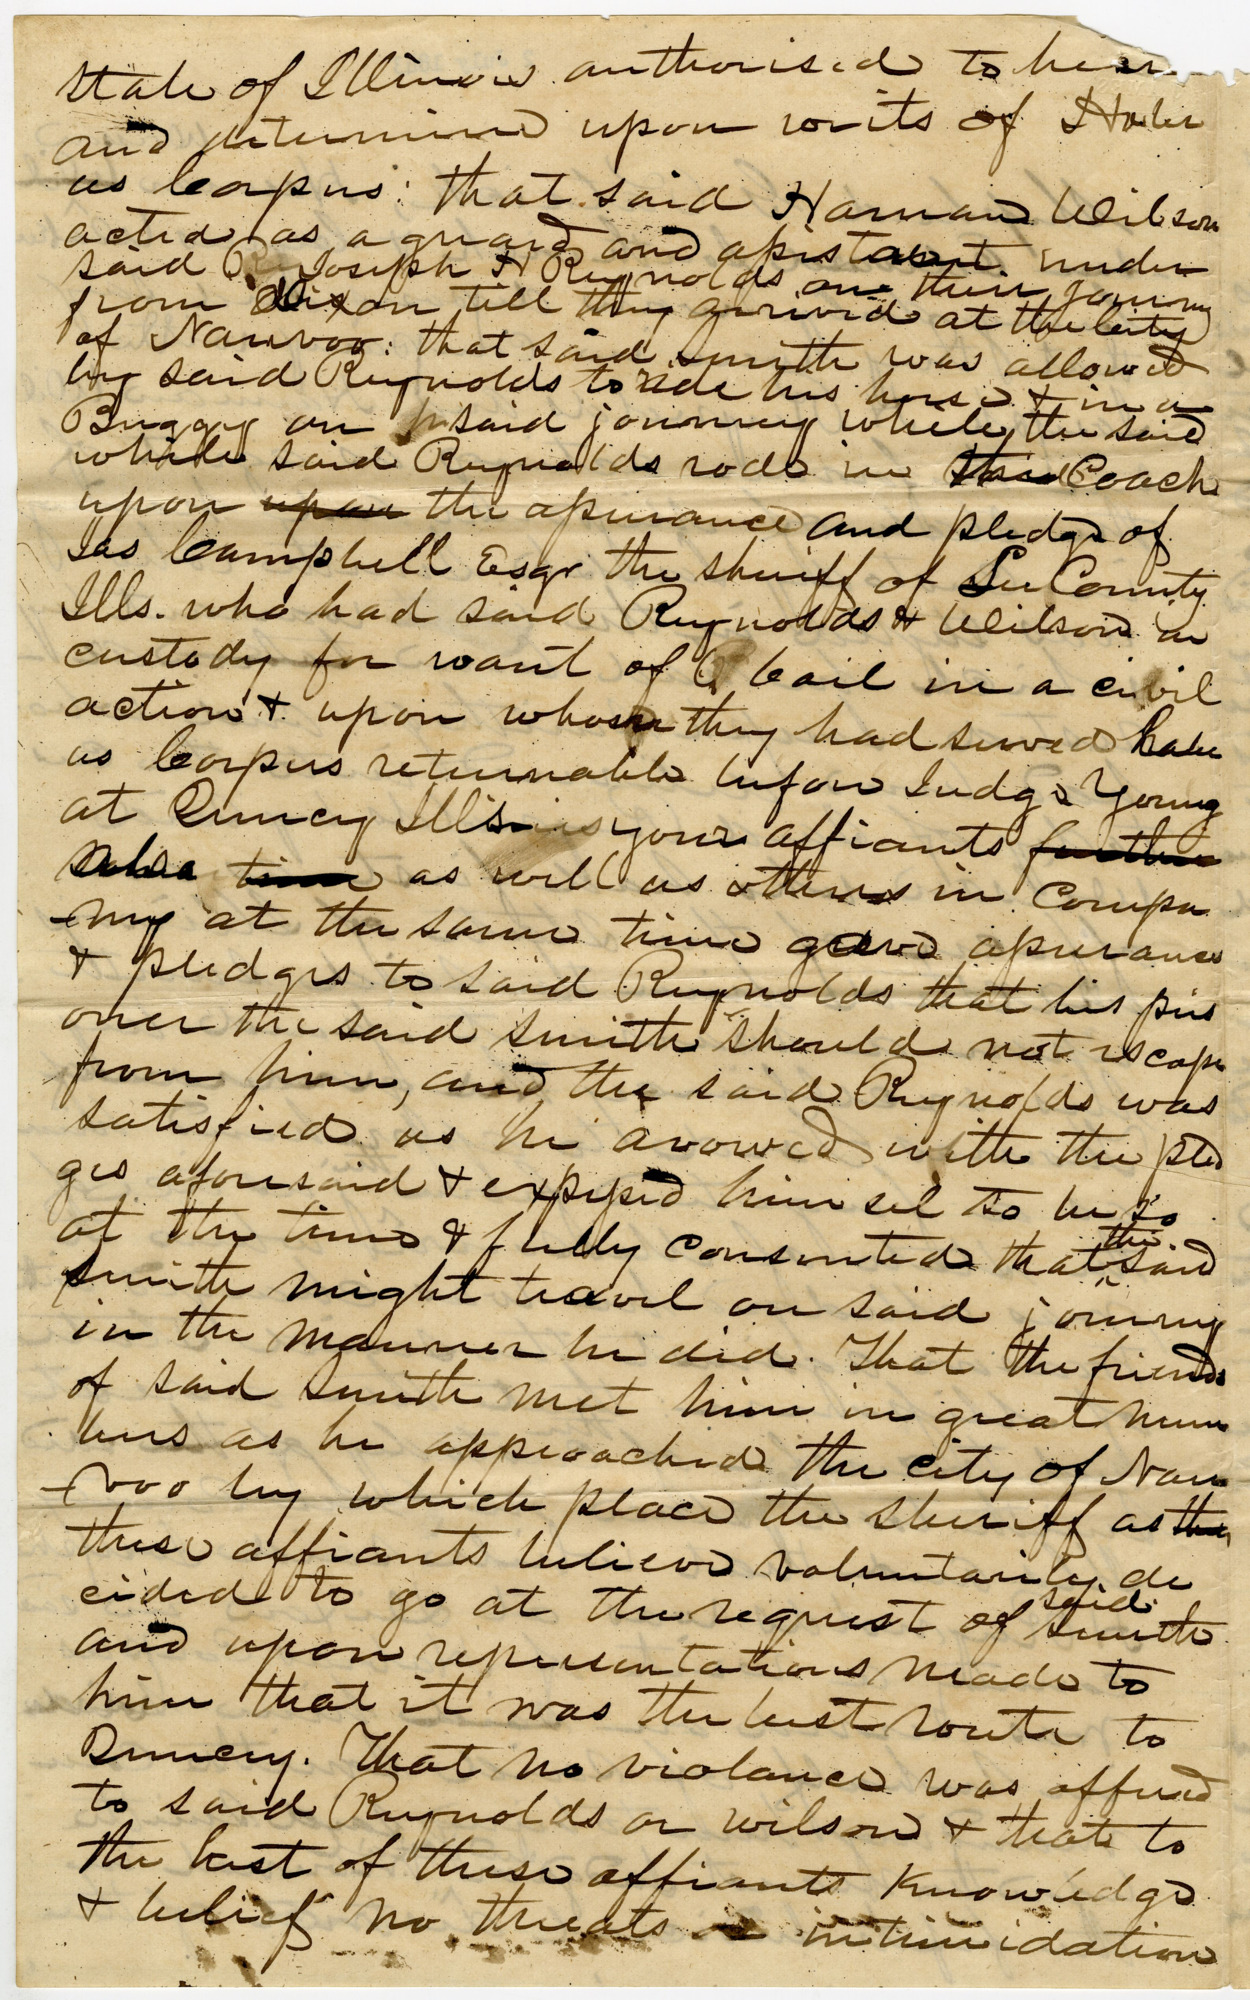 State of Illinois authorised to hear
and determine upon writs of Habe
as Corpus: that said Harman Wilson
acted as a guard and assistant under
said Joseph H Reynolds on their journey
from Dixon till they arrived at the City
of Nauvoo: that said Smith was allowed
by said Reynolds to ride his horse & in a
Buggy on said journey while the said
while said Reynolds rode in Coach
upon upon the assurance and pledge of
Jas Campbell Esqr the sheriff of Lee County
Ills. who had said Reynolds & Wilson in
custody for want of bail in a civil
action & upon whom they had served habe
as Corpus returnable before Judge Young
at Quincy Ills. your affiants further
time as well as others in compa
-ny at the same time gave assurances
& pledges to said Reynolds that his pris
oner the said Smith should not escape
from him, and the said Reynolds was
satisfied as he avowed with the pled
ges aforesaid & expressed him sel to be so
at the time & fully consented that the said
Smith might travel on said journey
in the manner he did. That the friends
of said Smith met him in great num
bers as he approached the city of Nau
-voo by which place the sheriff as
these affiants believe voluntarily de
cided to go at the request of said Smith
and upon representations made to
him that it was the best route to
Quincy. That no violance was offered
to said Reynolds or wilson & that to
the best of these affiants Knowledge
& belief no threats or intimidation